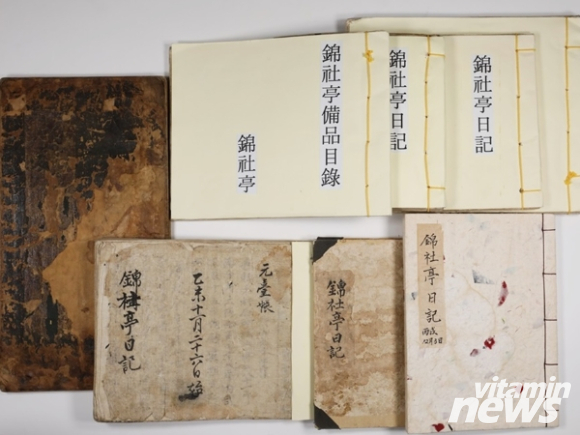 錦社亭備品目錄
錦社亭
錦社亭日記
錦社亭日記
元臺帳
乙未十月二十六日
錦社亭日記
錦社亭日記
錦社亭日記
vitamin
news